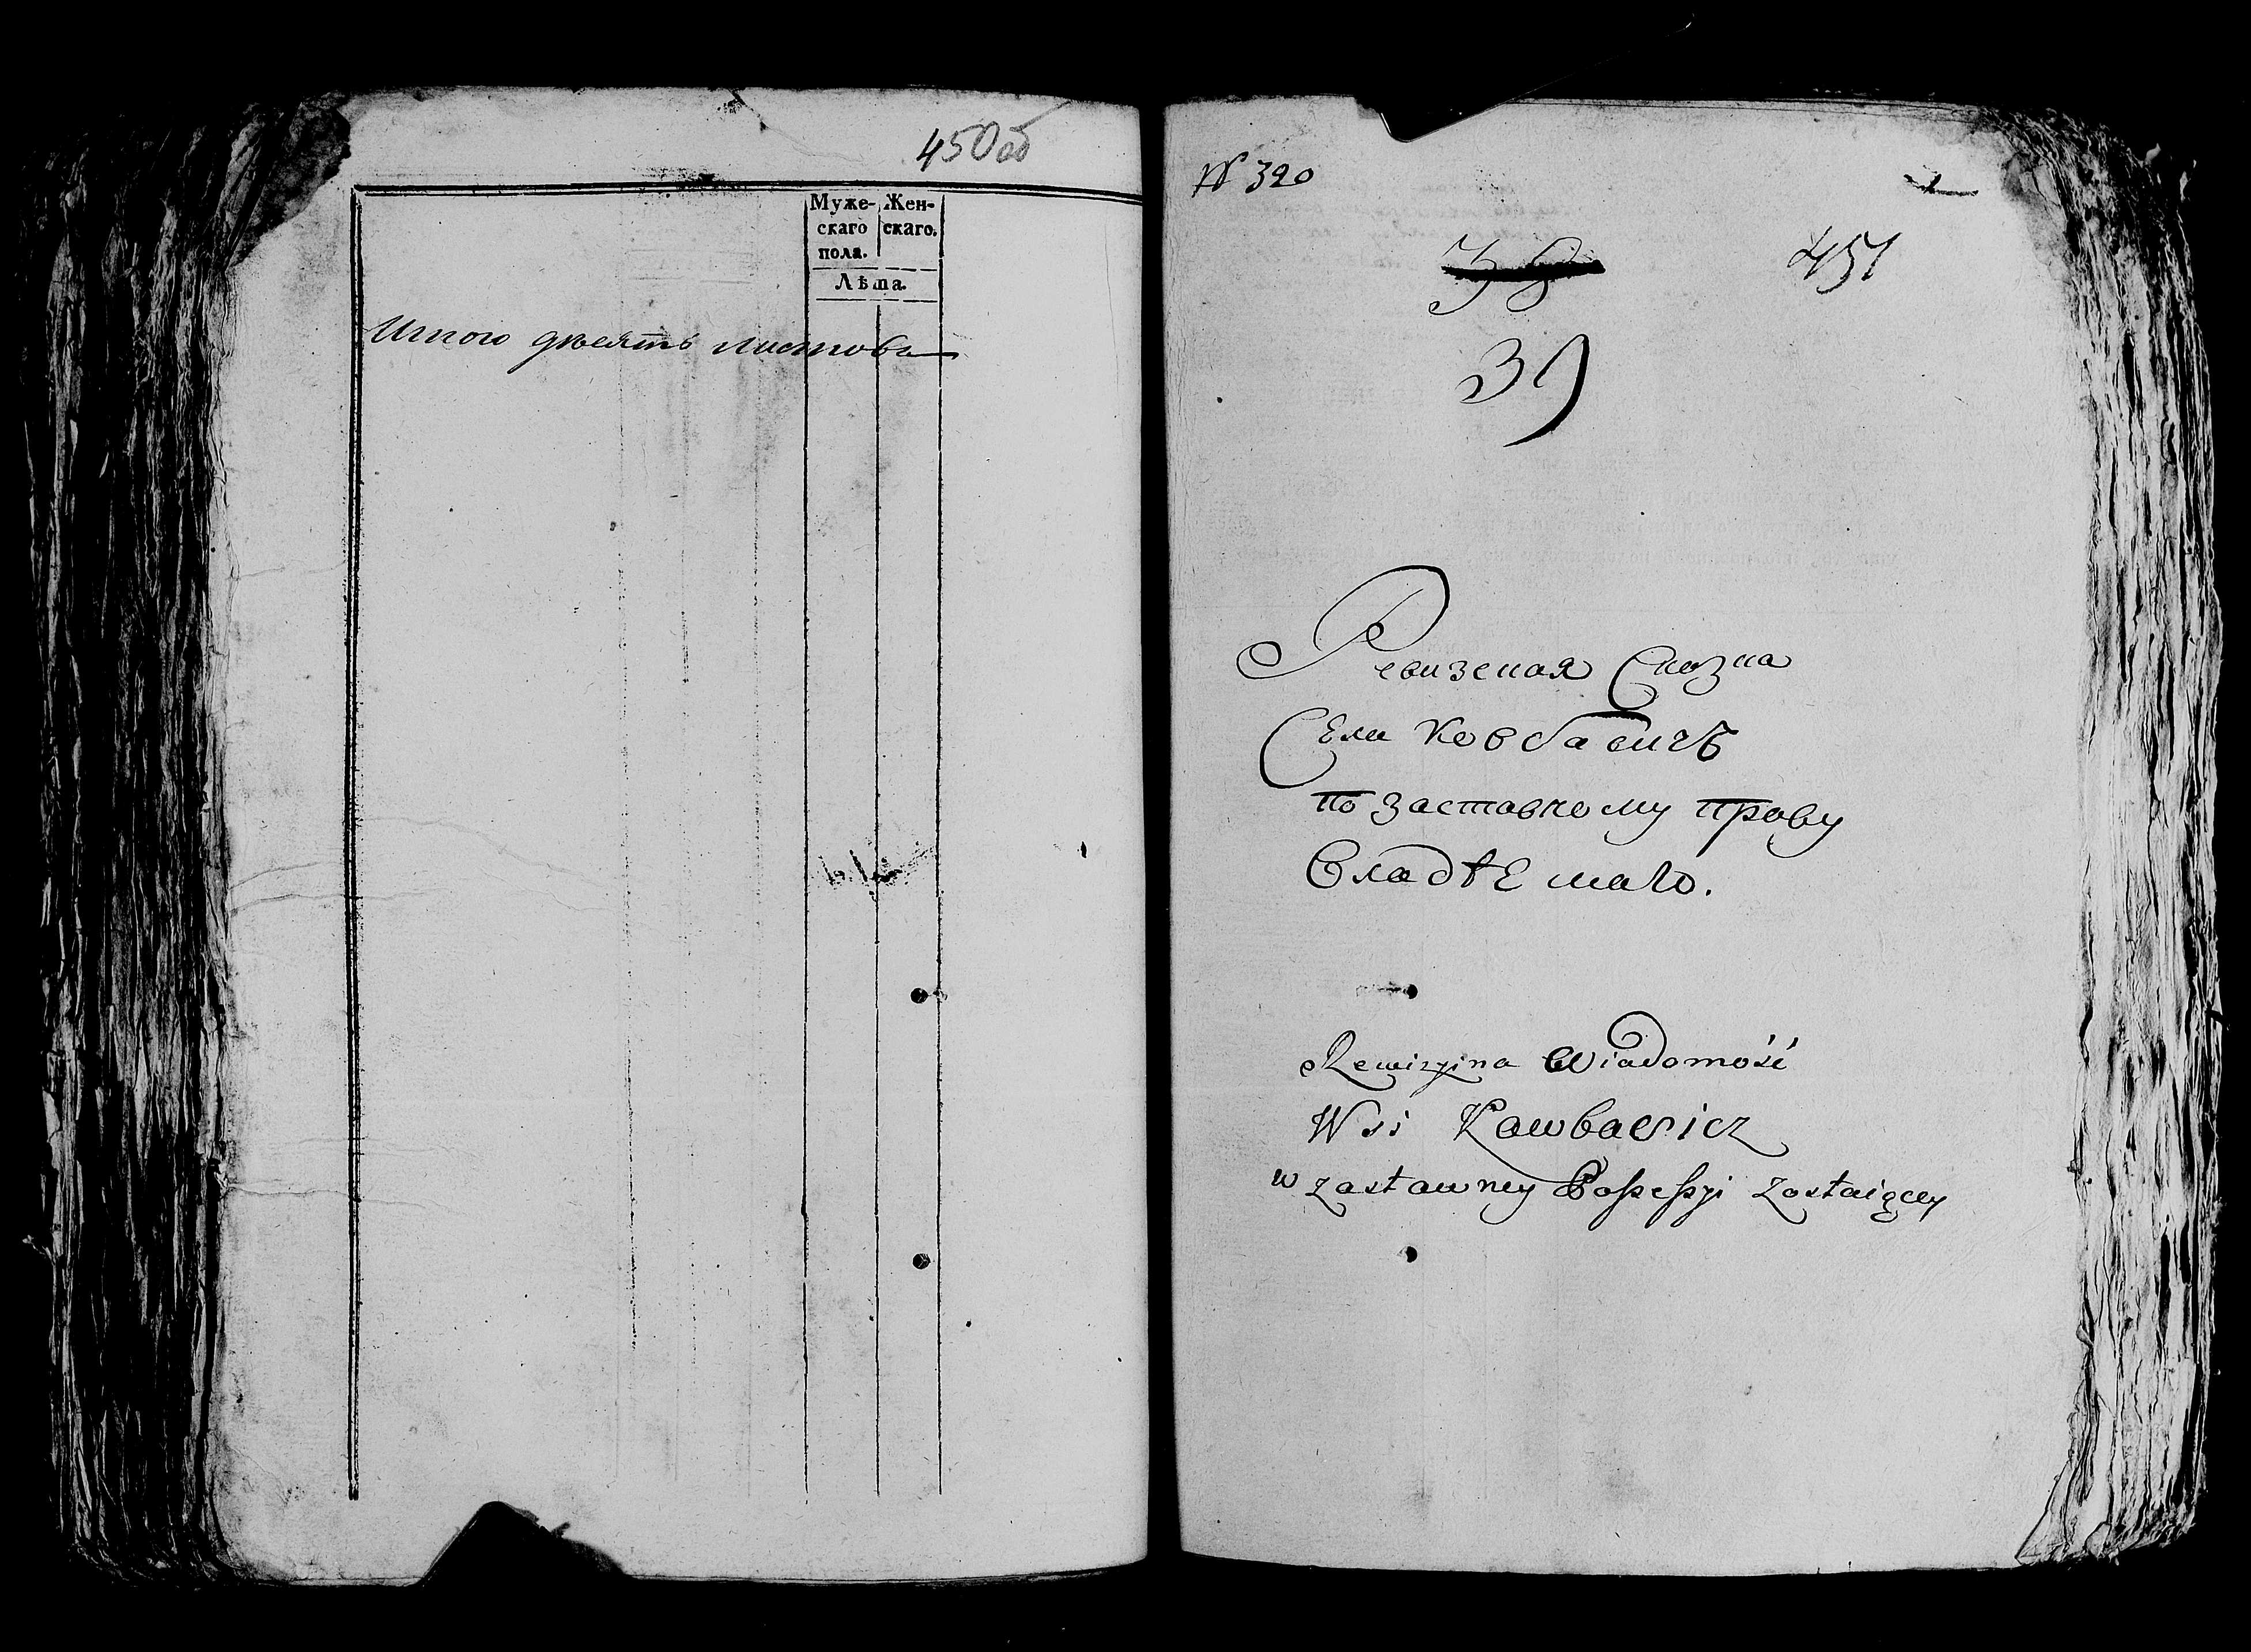 450об
Муже- Жен-
скаго скаго.
пола.
Лѣта.
Итого девять листовъ
№ 320
1
38
451
39
Ревизская Сказка
Села Ковбавичь
по заставному праву
владѣемаго.
Rewizyina Wiadomość
Wsi Kawbawicz
w zastawney Possessyi zostaiącey